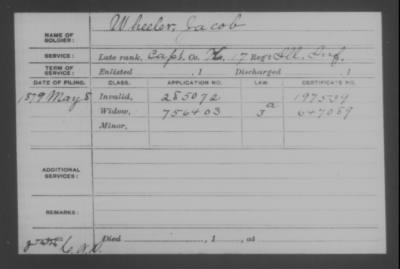 Wheeler, Jacob
NAME OF SOLDIER:
SERVICE: Late rank, Capt. Co. K, 17 Reg't Ill. Inf.
TERM OF SERVICE: Enlisted , 1 Discharged , 1
DATE OF FILING. CLASS. APPLICATION NO. LAW. CERTIFICATE NO.
1879 May 8 Invalid, 285072 197539
Widow, 756403 3 a 547059
Minor,
ADDITIONAL SERVICES:
REMARKS:
Died , 1 , at